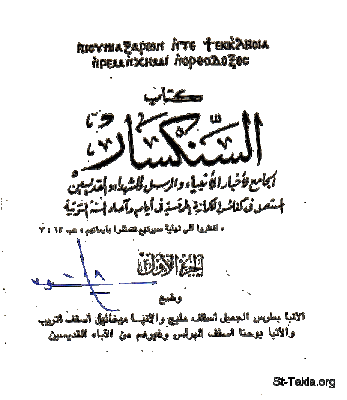 ⲡⲓⲥⲩⲛⲁⲝⲁⲣⲓⲟⲛ ⲛⲧⲉ ϯⲉⲕⲕⲗⲏⲥⲓⲁ
ⲛⲣⲉⲙⲛⲭⲏⲙⲓ ⲛⲟⲣⲑⲟⲇⲟⲝⲟⲥ
كتاب
السنكسار
الجامع لأخبار الأنبياء والرسل والشهداء والقديسين
المستعمل فى كنائس الكرازة المرقسية فى أيام وآحاد السنة التوتية
« انظروا الى نهاية سيرتهم فتمثلوا بايمانهم » عب ١٣ : ٧
الجزء الأول
وضع
الأنبا بطرس الجميل أسقف مليج والأنبا ميخائيل أسقف أتريب
والأنبا يوحنا أسقف البرلس وغيرهم من الآباء القديسين
St-Takla.org